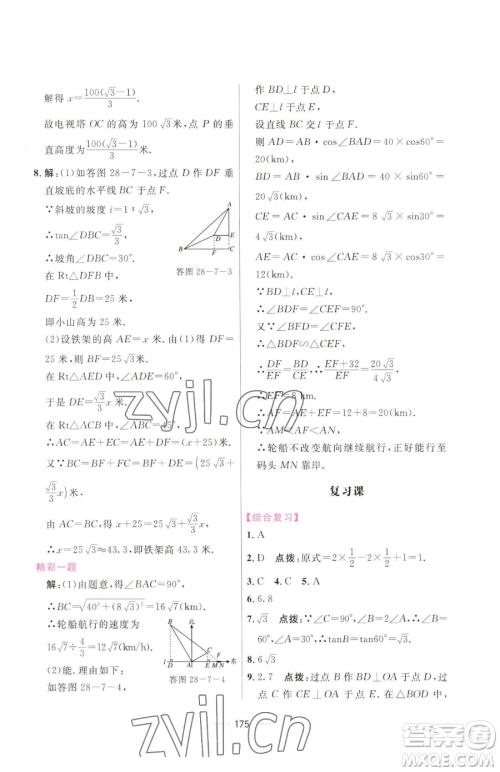 解得 x=100(√3-1)/3.
故电视塔 OC 的高为 100√3 米，点 P 的垂
直高度为 100(√3-1)/3 米.
8. 解:(1)如答图 28-7-3,过点 D 作 DF 垂
直坡底的水平线 BC 于点 F.
∵斜坡的坡度 i=1∶√3,
∴tan∠DBC=√3/3,
∴坡角∠DBC=30°.
在 Rt△DFB 中,
DF=1/2 DB=25 米,
即小山高为 25 米.
答图 28-7-3
(2)设铁架的高 AE=x 米.由(1)得 DF=
25 米,所以 BF=25√3 米.
在 Rt△AED 中,∠ADE=60°,
于是 DE=√3/3 x 米.
在 Rt△ACB 中,∠ABC=45°,
∴AC=AE+EC=AE+DF=(x+25)米,
BC=BF+FC=BF+DE=(25√3+
√3/3 x)米.
由 AC=BC,得 x+25=25√3+√3/3 x,
∴x=25√3≈43.3,即铁架高 43.3 米.
精彩一题
解:(1)由题意,得∠BAC=90°,
∴BC=√(40²+(8√3)²)=16√7(km),
∴轮船航行的速度为
16√7÷4/3=12√7(km/h).
(2)能.理由如下:
如答图 28-7-4,
答图 28-7-4
作 BD⊥l 于点 D,
CE⊥l 于点 E,
设直线 BC 交 l 于点 F,
则 BD=AB·cos∠BAD=40×cos60°=
20(km),
AD=AB·sin∠BAD=20√3(km),
CE=AC·sin∠CAE=8√3×sin30°=
4√3(km),
AE=AC·cos∠CAE=8√3×cos30°=
12(km).
∵BD⊥l,CE⊥l,
∴∠BDF=∠CEF=90°.
又∵∠BFD=∠CFE,
∴△BDF∽△CEF,
∴DF/EF=BD/CE,∴(EF+32)/EF=20√3/4√3,
∴EF=8 km.
∴AF=AE+EF=12+8=20(km).
∵AM<AF<AN,
∴轮船不改变航向继续航行,正好能行至
码头 MN 靠岸.
复习课
【综合复习】
1. A
2. D 点拨:原式=2×1/2-2×1/2+1=1.
3. C 4. C 5. A
6. 6.8
7. √3 点拨:∵∠C=90°,∠B=60°,
∴tanB=√3.
8. 6√3
9. 2.7 点拨:过点 B 作 BD⊥OA 于点 D,
过点 C 作 CE⊥OA 于点 E.在△BOD 中,
175
zyjl.cn
zyjl.cn